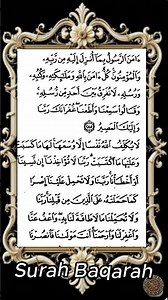 ءَامَنَ ٱلرَّسُولُ بِمَآ أُنزِلَ إِلَيْهِ مِن رَّبِّهِۦ
وَٱلْمُؤْمِنُونَ كُلٌّ ءَامَنَ بِٱللَّهِ وَمَلَٰٓئِكَتِهِۦ وَكُتُبِهِۦ
وَرُسُلِهِۦ لَا نُفَرِّقُ بَيْنَ أَحَدٍ مِّن رُّسُلِهِۦ
وَقَالُوا۟ سَمِعْنَا وَأَطَعْنَا غُفْرَانَكَ رَبَّنَا
وَإِلَيْكَ ٱلْمَصِيرُ
لَا يُكَلِّفُ ٱللَّهُ نَفْسًا إِلَّا وُسْعَهَا لَهَا مَا كَسَبَتْ
وَعَلَيْهَا مَا ٱكْتَسَبَتْ رَبَّنَا لَا تُؤَاخِذْنَآ إِن نَّسِينَآ
أَوْ أَخْطَأْنَا رَبَّنَا وَلَا تَحْمِلْ عَلَيْنَآ إِصْرًا
كَمَا حَمَلْتَهُۥ عَلَى ٱلَّذِينَ مِن قَبْلِنَا رَبَّنَا
وَلَا تُحَمِّلْنَا مَا لَا طَاقَةَ لَنَا بِهِۦ وَٱعْفُ عَنَّا
وَٱغْفِرْ لَنَا وَٱرْحَمْنَآ أَنتَ مَوْلَىٰنَا فَٱنصُرْنَا
Surah Baqarah